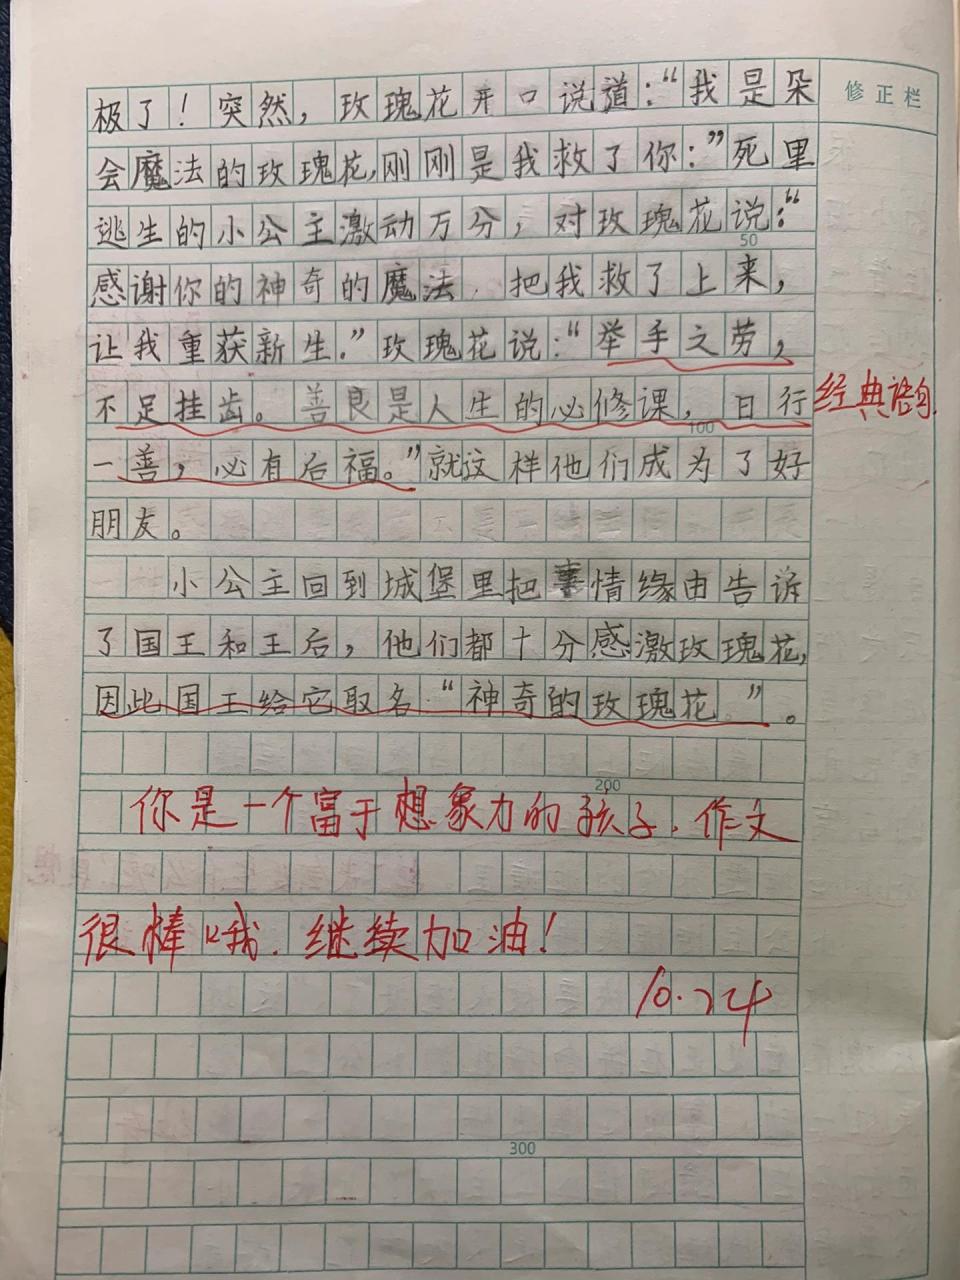 修正栏
极了！突然，玫瑰花开口说道：“我是朵
会魔法的玫瑰花，刚刚是我救了你：”死里
逃生的小公主激动万分，对玫瑰花说：“
50
感谢你的神奇的魔法，把我救了上来，
让我重获新生。”玫瑰花说：“举手之劳，
不足挂齿。善良是人生的必修课，日行
经典语句.
100
一善，必有后福。”就这样他们成为了好
朋友。
小公主回到城堡里把事情缘由告诉
了国王和王后，他们都十分感激玫瑰花，
因此国王给它取名“神奇的玫瑰花”。
200
你是一个富于想象力的孩子，作文
很棒哦，继续加油！
10.24
300